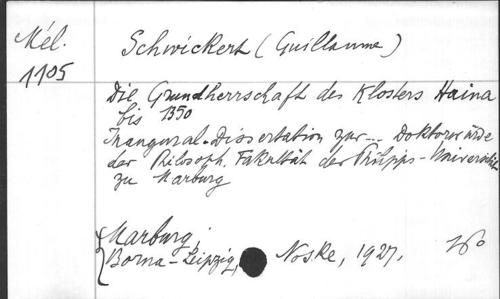 Mél.
1105
Schwickert (Guillaume)
Die Grundherrschaft des Klosters Haina
bis 1350
Inaugural-Dissertation zur... Doktorwürde
der Philosoph. Fakultät der Philipps-Universität
zu Marburg
Marburg;
Borna-Leipzig, Noske, 1927.